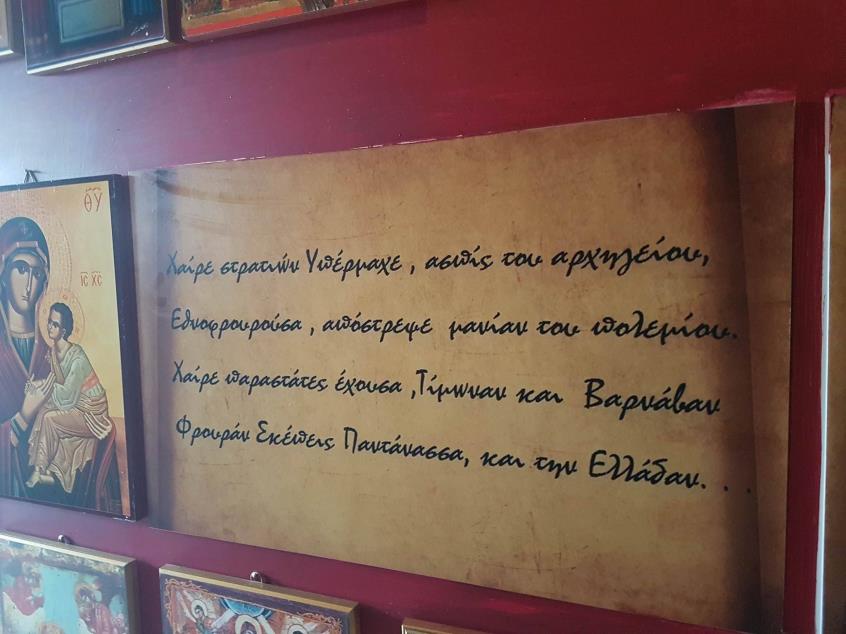 ΘΥ
ΙC ΧC
Χαίρε στρατιών Υπέρμαχε , ασπίς του αρχηγείου,
Εθνοφρουρούσα , απόστρεψε μανίαν του πολεμίου.
Χαίρε παραστάτες έχουσα ,Τίμωναν και Βαρνάβαν
Φρουράν Σκέπεις Παντάνασσα, και την Ελλάδαν. . .